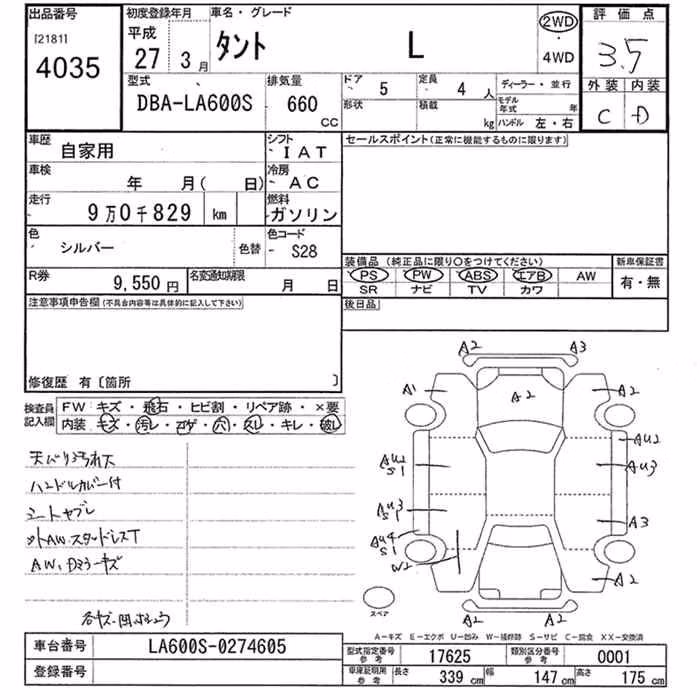 出品番号
[2181]
4035
初度登録年月
平成
27 3月
車名・グレード
タント L
2WD
・
4WD
評価点
3.5
外装 内装
C D
型式
DBA-LA600S
排気量
660
CC
ドア 5
定員 4人
形状
積載 kg
ディーラー・並行
モデル年式 年
ハンドル 左・右
車歴
自家用
シフト
IAT
車検
年 月( 日)
冷房
AC
走行
9万0千829 km
燃料
ガソリン
色
シルバー
色替
色コード
S28
R券
9,550円
名変通知期限
月 日
セールスポイント(正常に機能するものに限ります)
装備品(純正品に限り○をつけてください)
PS PW ABS エアB AW
SR ナビ TV カワ
新車保証書
有・無
後日品
注意事項申告欄(不具合内容等は具体的に記入して下さい)
修復歴 有〔箇所 〕
検査員記入欄
FW キズ・飛石・ヒビ割・リペア跡・×要
内装 キズ・汚レ・コゲ・穴・スレ・キレ・破レ
天バリ汚れ大
ハンドルカバー付
シートヤブレ
外AW.スタッドレスT
AW、Dミラーキズ
A2 A3
A1 A2 A2
AU2 S1
AU2
AU3
AU3 S1
A3
AU4 S1
W2
A2
A2 A2
スペア
A－キズ E－エクボ U－凹み W－補修跡 S－サビ C－腐食 XX－交換済
車台番号 LA600S-0274605
登録番号
型式指定番号 参考 17625
類別区分番号 参考 0001
車庫証明用 参考 長さ 339cm 幅 147cm 高さ 175cm